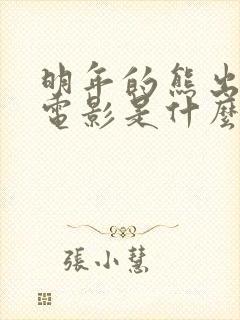 明年的熊出
電影是什麼
張小慧